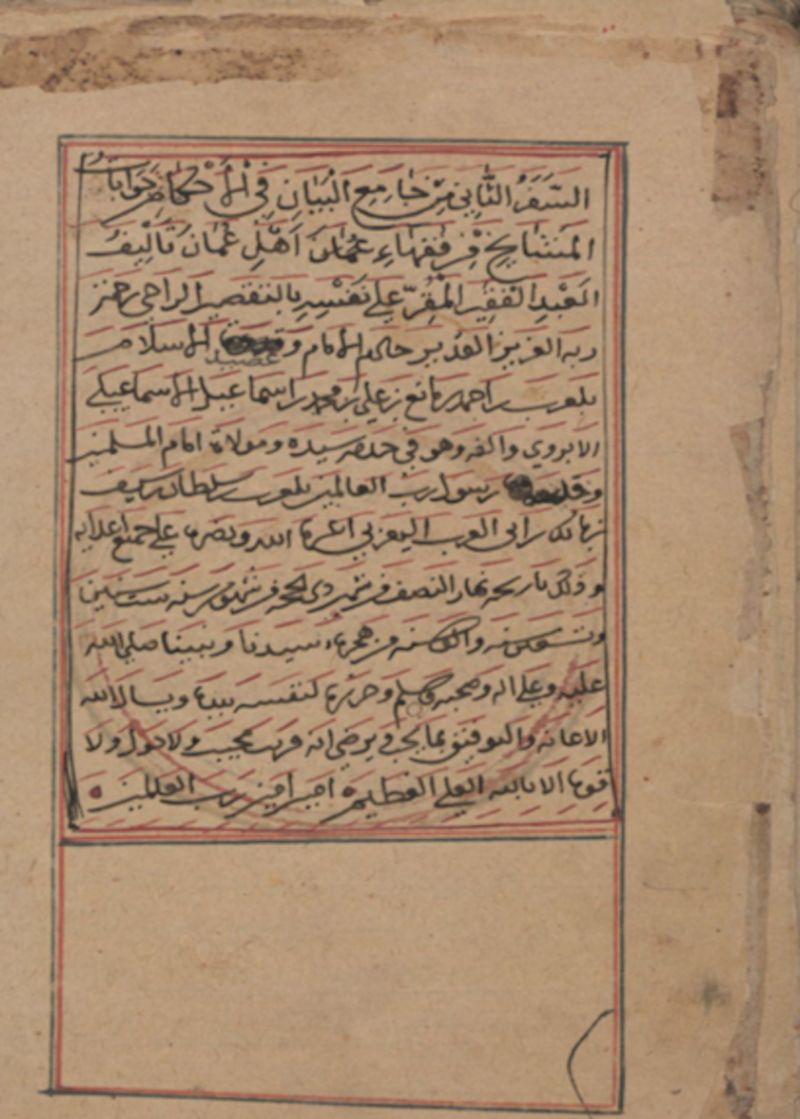 السَّفَرُ الثَّانِي مِنْ جَامِعِ الْبَيَانِ فِي الْأَحْكَامِ جوابات
المشايخ مِنْ فُقَهَاءِ عُمَانَ أَهْلِ عُمَانَ تَأْلِيفُ
الْعَبْدِ الْفَقِيرِ الْمُقِرِّ عَلَى نَفْسِهِ بالتقصير الراجي رحمة
ربه العزيز القدير خادم الامام الاسلام
بلعرب بن احمد بن مانع بن علي بن محمد بن اسماعيل الاسماعيلي
الابروي والفه وهو في خدمة سيده ومولاه امام المسلمين
رسول رب العالمين بلعرب بن سلطان بن سيف
بن مالك بن ابي العرب اليعربي اعزه الله ونصره على جميع اعدايه
وذلك تاريخه نهار النصف من شهر ذي الحجة من شهور سنه ست سنين
وتسعين سنه والف سنه من هجرة سيدنا ونبينا صلى الله
عليه وعلى اله وصحبه وسلم وحرره لنفسه بيده ويسال الله
الاعانه والتوفيق لما يحب ويرضى انه قريب مجيب ولا حول ولا
قوة الا بالله العلي العظيم امين امين رب العلمين